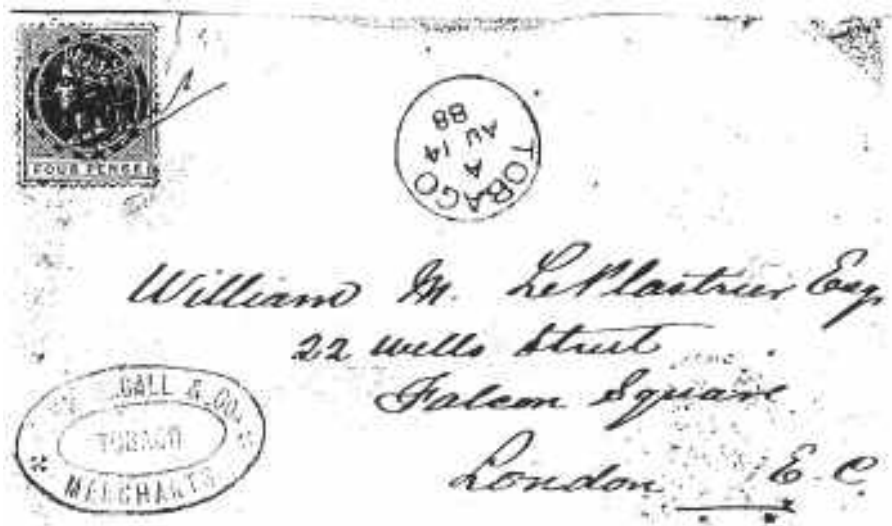 FOUR PENCE
TOBAGO
A
AU 14
88
William M. LePlastrier Esq
22 Wells Street
Falcon Square
London E. C
GALL & CO.
TOBAGO
MERCHANTS